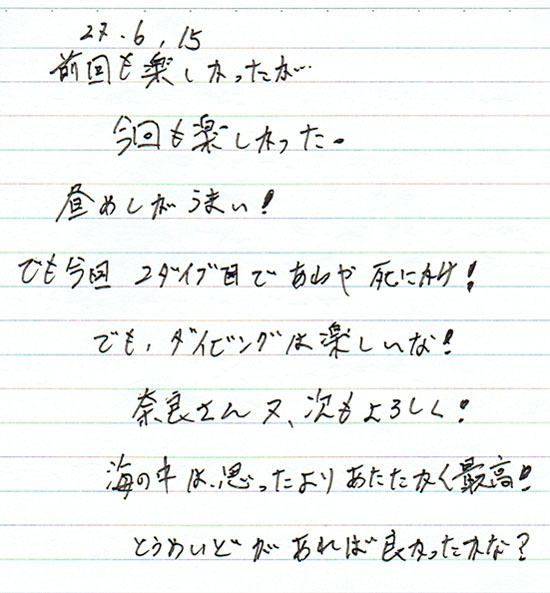 27.6.15
前回も楽しかったが…
今回も楽しかった。
昼めしがうまい!
でも今回 2ダイブ目であわや死にかけ!
でも、ダイビングは楽しいな!
奈良さん又、次もよろしく!
海の中は、思ったよりあたたかく最高!!
とうめいどがあれば良かったかな?